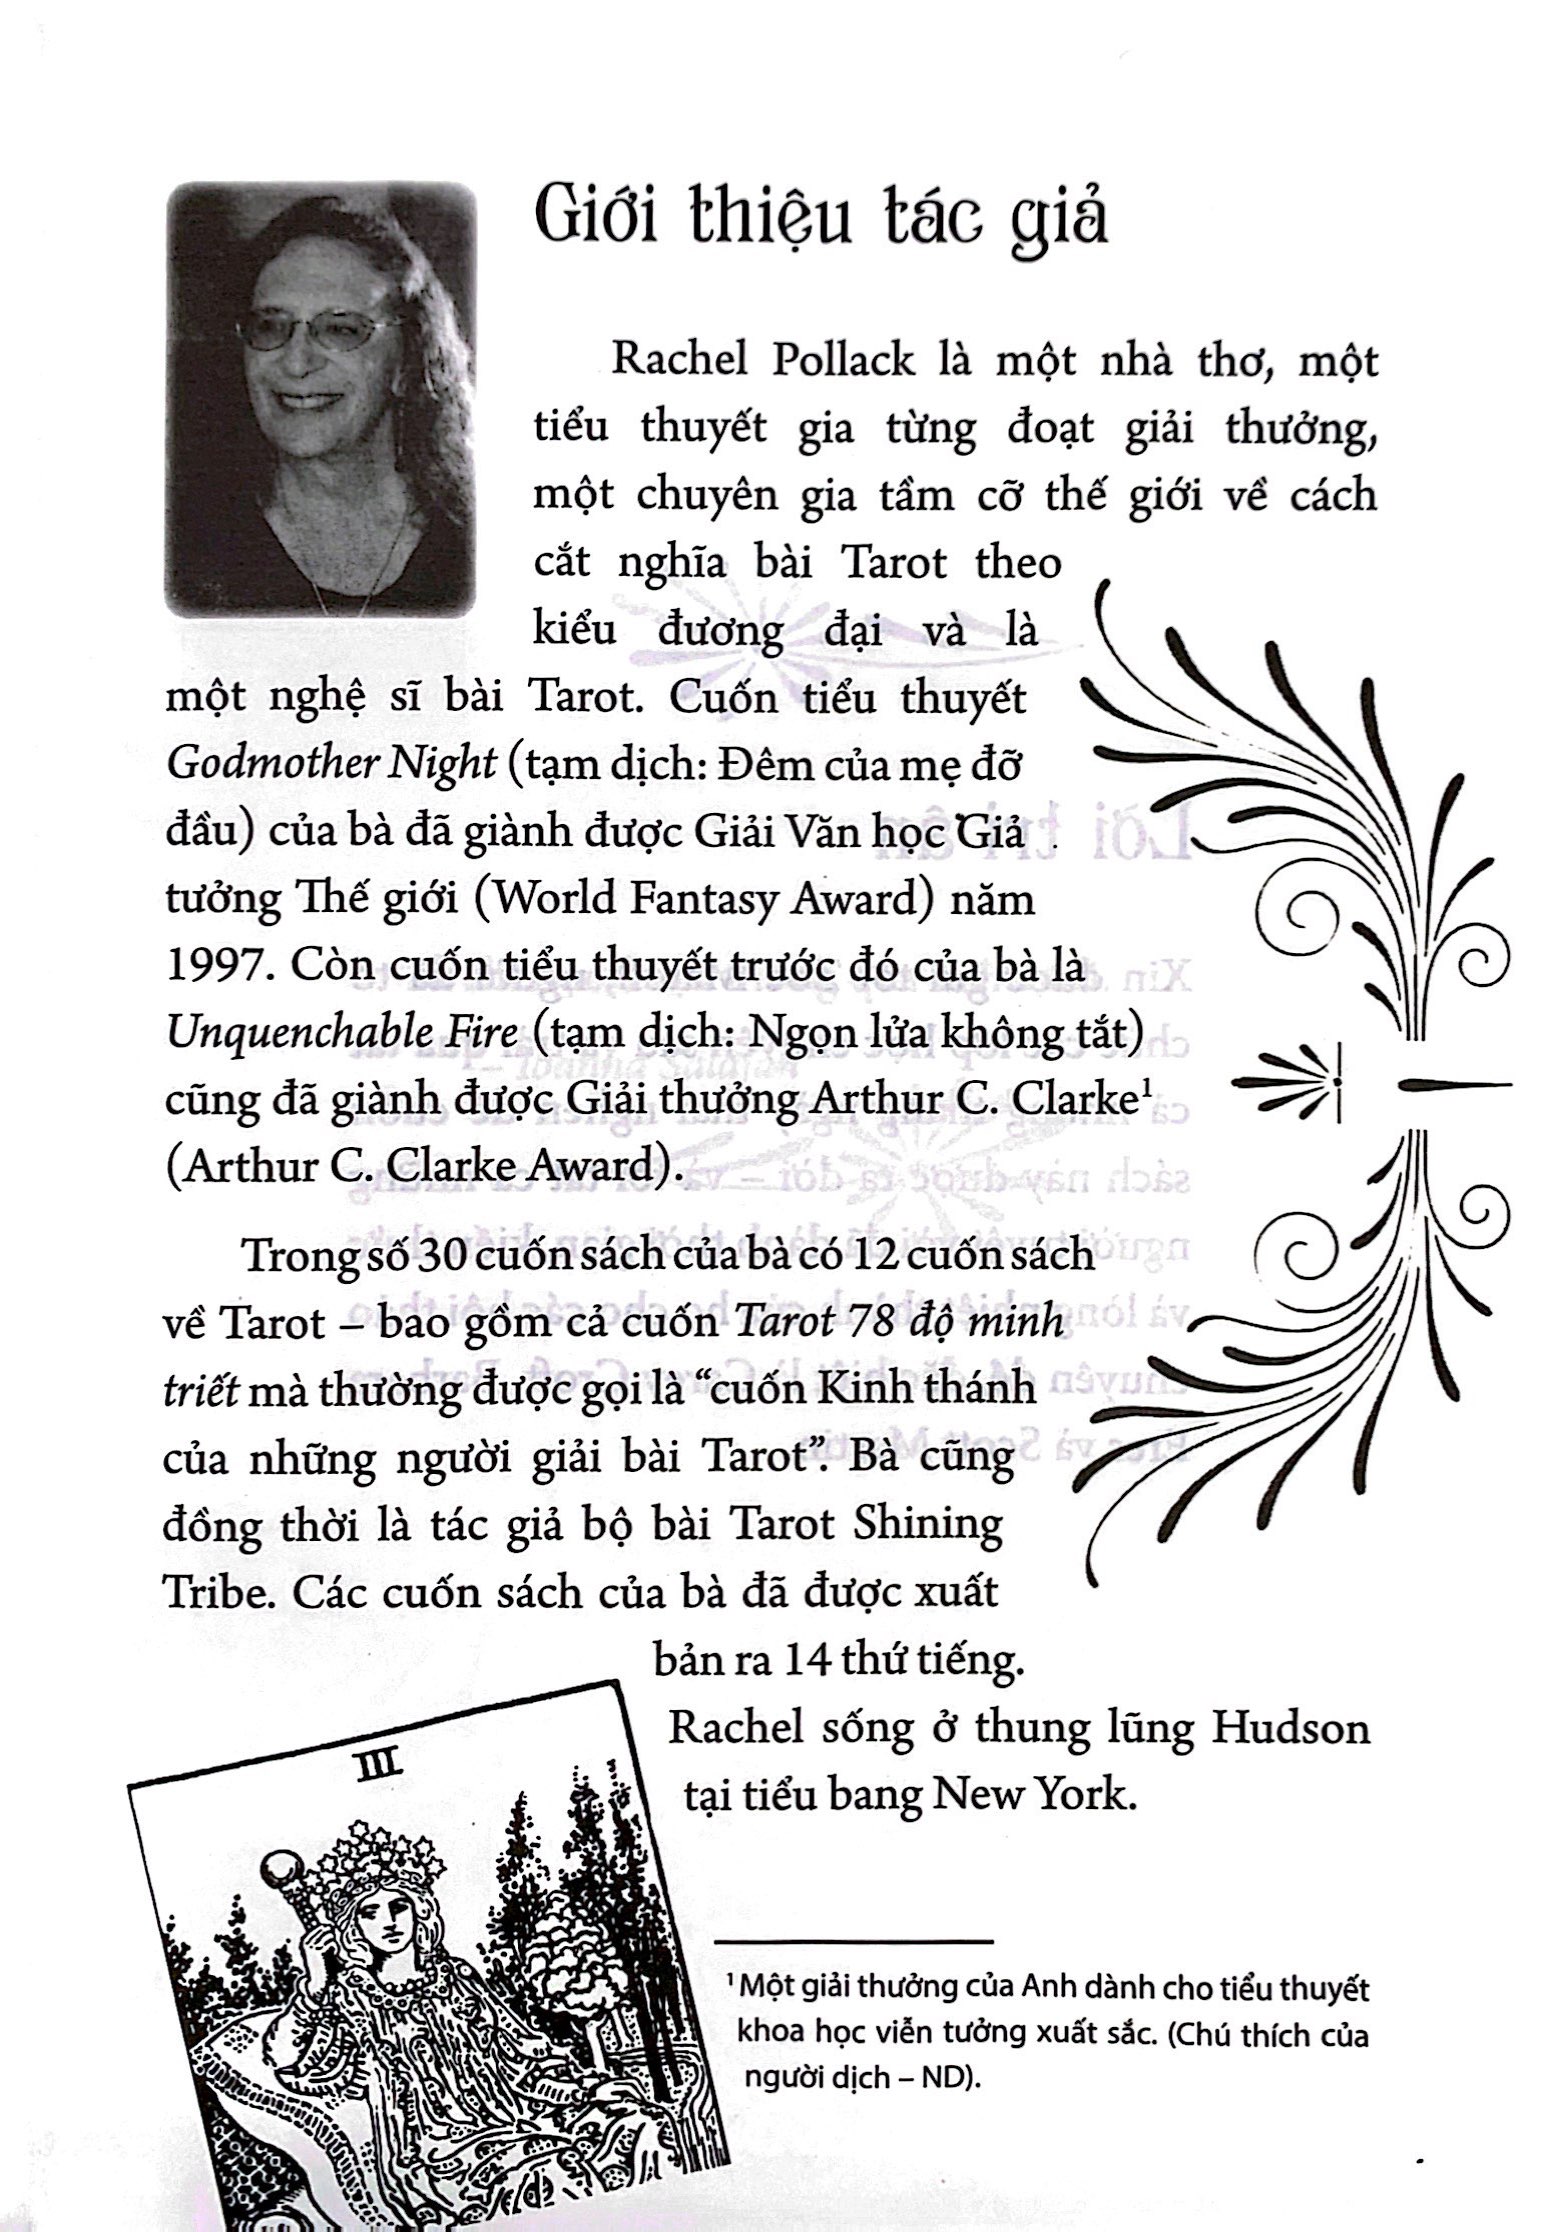 Giới thiệu tác giả
Rachel Pollack là một nhà thơ, một
tiểu thuyết gia từng đoạt giải thưởng,
một chuyên gia tầm cỡ thế giới về cách
cắt nghĩa bài Tarot theo
kiểu đương đại và là
một nghệ sĩ bài Tarot. Cuốn tiểu thuyết
Godmother Night (tạm dịch: Đêm của mẹ đỡ
đầu) của bà đã giành được Giải Văn học Giả
tưởng Thế giới (World Fantasy Award) năm
1997. Còn cuốn tiểu thuyết trước đó của bà là
Unquenchable Fire (tạm dịch: Ngọn lửa không tắt)
cũng đã giành được Giải thưởng Arthur C. Clarke¹
(Arthur C. Clarke Award).
Trong số 30 cuốn sách của bà có 12 cuốn sách
về Tarot – bao gồm cả cuốn Tarot 78 độ minh
triết mà thường được gọi là “cuốn Kinh thánh
của những người giải bài Tarot”. Bà cũng
đồng thời là tác giả bộ bài Tarot Shining
Tribe. Các cuốn sách của bà đã được xuất
bản ra 14 thứ tiếng.
Rachel sống ở thung lũng Hudson
tại tiểu bang New York.
III
¹ Một giải thưởng của Anh dành cho tiểu thuyết
khoa học viễn tưởng xuất sắc. (Chú thích của
người dịch – ND).